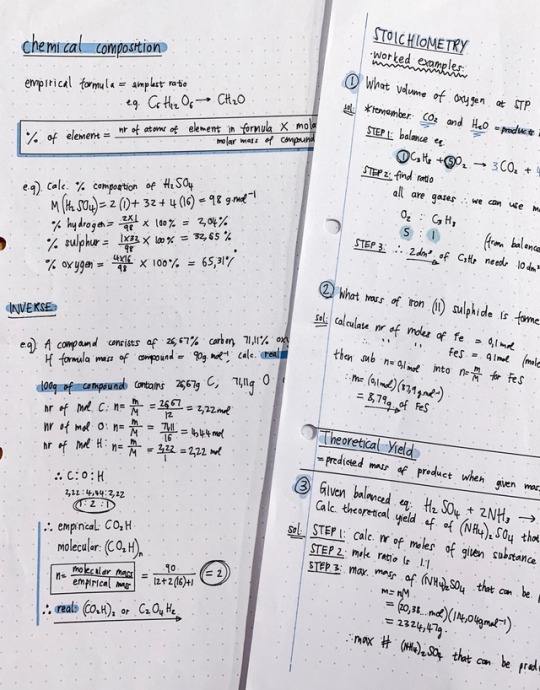 chemical composition
empirical formula = simplest ratio
eg. C₆H₁₂O₆ → CH₂O
% of element = nr of atoms of element in formula × mola
molar mass of compound
e.g) calc. % composition of H₂SO₄
M(H₂SO₄) = 2(1) + 32 + 4(16) = 98 g.mol⁻¹
% hydrogen = 2×1/98 × 100% = 2,04%
% sulphur = 1×32/98 × 100% = 32,65%
% oxygen = 4×16/98 × 100% = 65,31%
INVERSE
eg) A compound consists of 26,67% carbon, 71,11% ox
H formula mass of compound = 90g.mol⁻¹, calc. real
100g of compound contains 26,67g C, 71,11g O
nr of mol C: n = m/M = 26,67/12 = 2,22 mol
nr of mol O: n = m/M = 71,11/16 = 4,44 mol
nr of mol H: n = m/M = 2,22/1 = 2,22 mol
∴ C : O : H
2,22 : 4,44 : 2,22
1 : 2 : 1
∴ empirical: CO₂H
molecular: (CO₂H)n
n = molecular mass/empirical mass = 90/12+2(16)+1 = 2
∴ real: (CO₂H)₂ or C₂O₄H₂
STOICHIOMETRY
worked examples:
① What volume of oxygen at STP
sol: *remember: CO₂ and H₂O = products
STEP 1: balance eq.
①C₃H₈ + ⑤O₂ → 3CO₂ + 4
STEP 2: find ratio
all are gases ∴ we can use m
O₂ : C₃H₈
5 : 1
(from balanc
STEP 3: ∴ 2dm³ of C₃H₈ needs 10dm³
② What mass of iron (II) sulphide is forme
sol: calculate nr of moles of Fe = 0,1mol
" " " FeS = 0,1mol (mole
then sub n = 0,1mol into n = m/M for FeS
∴ m = (0,1mol)(87,9g.mol⁻¹)
= 8,79g of FeS
Theoretical Yield
= predicted mass of product when given mas
③ Given balanced eq: H₂SO₄ + 2NH₃ →
Calc. theoretical yield of of (NH₄)₂SO₄ that
sol: STEP 1: calc. nr of moles of given substance
STEP 2: mole ratio is 1:1
STEP 3: max. mass of (NH₄)₂SO₄ that can be
m = nM
= (20,38... mol)(114,04g.mol⁻¹)
= 2324,47g.
∴ max # (NH₄)₂SO₄ that can be prod